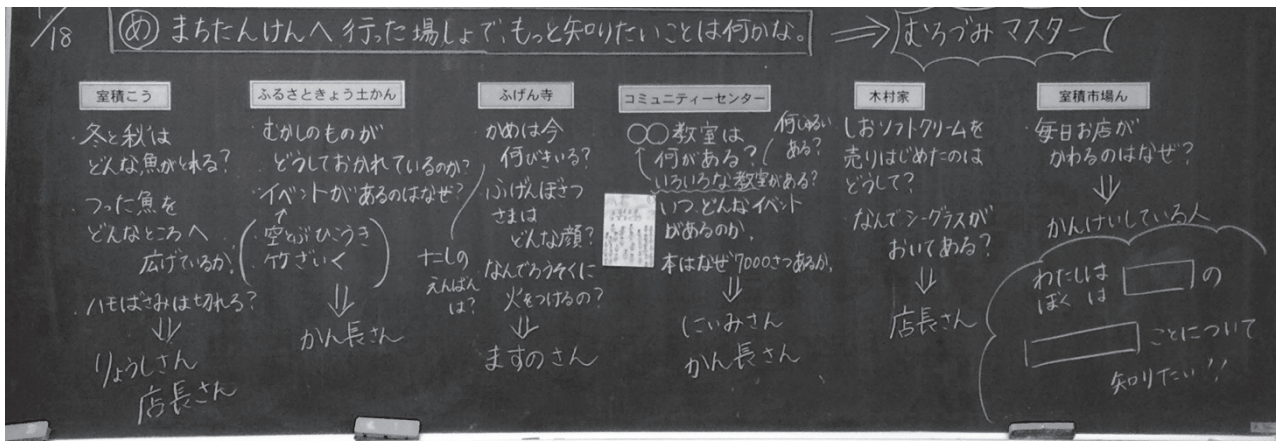 /18
め まちたんけんへ行った場しょで、もっと知りたいことは何かな。
⇒ むろづみマスター
室積こう
・冬と秋は
どんな魚がとれる?
・つった魚を
どんなところへ
広げているか。
・ハモばさみは切れる?
⇓
りょうしさん
店長さん
ふるさときょう土かん
・むかしのものが
どうしておかれているのか?
・イベントがあるのはなぜ?
↑
・空とぶひこうき
・竹ざいく
⇓
かん長さん
ふげん寺
・かめは今
何びきいる?
・ふげんぼさつ
さまは
どんな顔?
・なんでろうそくに
火をつけるの?
えんばん
は?
⇓
ますのさん
コミュニティーセンター
○○教室は
何がある?
何しゅるい
ある?
いろいろな教室がある?
・いつ、どんなイベント
があるのか。
・本はなぜ7000さつあるか。
⇓
にいみさん
かん長さん
木村家
・しおソフトクリームを
売りはじめたのは
どうして?
・なんでシーグラスが
おいてある?
⇓
店長さん
室積市場ん
・毎日お店が
かわるのはなぜ?
⇓
かんけいしている人
わたしは
ぼくは
の
ことについて
知りたい!!